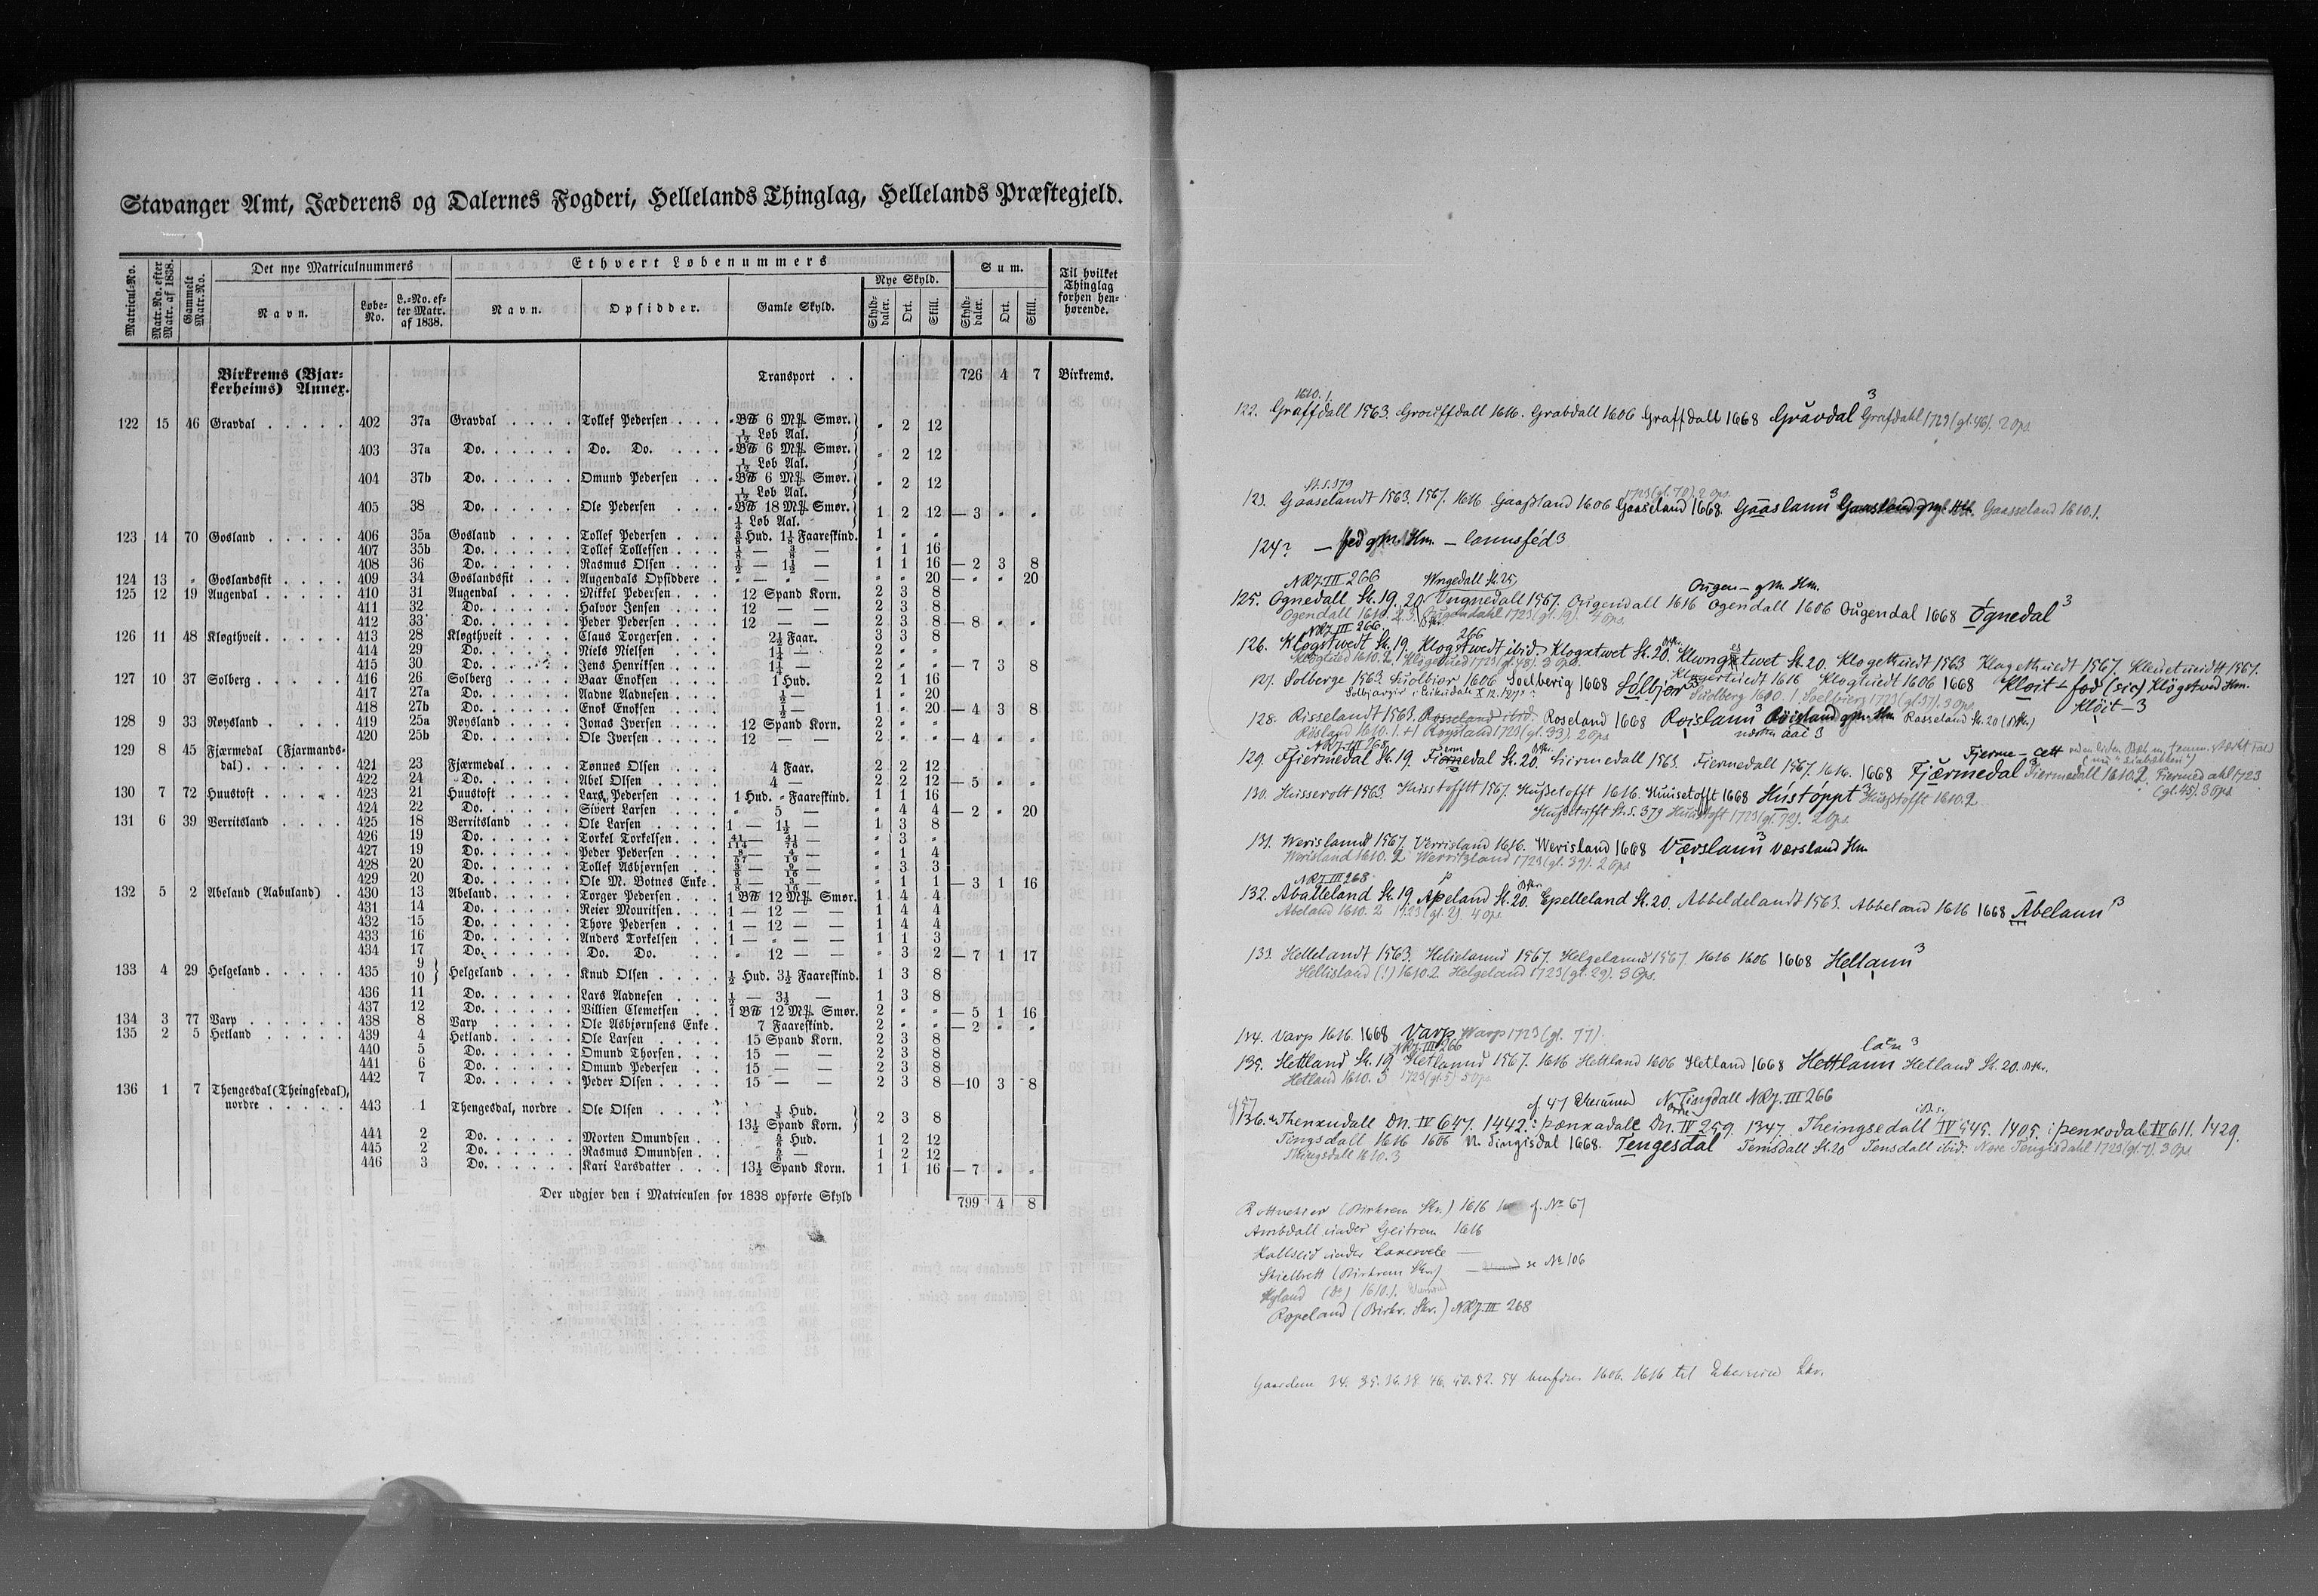 Stavanger Amt, Jæderens og Dalernes Fogderi, Hellelands Thinglag, Hellelands Præstegjeld.
Matricul-No. Matr.No. efter Matr. af 1838. Gammelt Matr.No. Det nye Matriculnummers Ethvert Løbenummers Sum. Til hvilket Thinglag forhen henhørende.
Navn. Løbe-No. L.-No. efter Matr. af 1838. Navn. Opsidder. Gamle Skyld. Nye Skyld. Skylddaler. Ort. Skill. Skylddaler. Ort. Skill.
Birkrems (Bjar-
kerheims) Annex. Transport . . 726 4 7 Birkrems.
122 15 46 Gravdal . . . . . 402 37a Gravdal . . . . Tollef Pedersen . . . " B℔ 6 M℔ Smør. " 2 12
1/12 Løb Aal.
403 37a Do. . . . . . Do. Do. . . . " B℔ 6 M℔ Smør. " 2 12
1/12 Løb Aal.
404 37b Do. . . . . . Omund Pedersen . . " B℔ 6 M℔ Smør. " 2 12
1/12 Løb Aal.
405 38 Do. . . . . . Ole Pedersen . . . " B℔ 18 M℔ Smør. 1 2 12 — 3 " "
1/4 Løb Aal.
123 14 70 Gosland . . . . . 406 35a Gosland . . . . Tollef Pedersen . . . 3/8 Hud. 1 1/8 Faareskind. 1 " "
407 35b Do. . . . . . Tollef Tollefsen . . . 1/8 — 3/8 — " 1 16
408 36 Do. . . . . . Rasmus Olsen . . . . 1/2 — 1 1/2 — 1 1 16 — 2 3 8
124 13 " Goslandsfit . . . . 409 34 Goslandsfit . . . Augendals Opsiddere . " — " — " " 20 — " " 20
125 12 19 Augendal . . . . . 410 31 Augendal . . . . Mikkel Pedersen . . . 12 Spand Korn. 2 3 8
411 32 Do. . . . . . Halvor Jensen . . . 12 — — 2 3 8
412 33 Do. . . . . . Peder Pedersen . . . 12 — — 2 3 8 — 8 " "
126 11 48 Kløgthveit . . . . . 413 28 Kløgthveit . . . . Claus Torgersen . . . 2 1/2 Faar. 3 3 8
414 29 Do. . . . . . Niels Nielsen . . . 1 1/4 — 2 " "
415 30 Do. . . . . . Jens Henriksen . . . . 1 1/4 — 2 " " — 7 3 8
127 10 37 Solberg . . . . . 416 26 Solberg . . . . Baar Enoksen . . . 1 Hud. 2 1 16
417 27a Do. . . . . . Aadne Aadnesen . . . . 1/2 — 1 " 20
418 27b Do. . . . . . Enok Enoksen . . . 1/2 — 1 " 20 — 4 3 8
128 9 33 Røysland . . . . . 419 25a Røysland . . . . Jonas Iversen . . . . 12 Spand Korn. 2 " "
420 25b Do. . . . . . Ole Iversen . . . . 12 — — 2 " " — 4 " "
129 8 45 Fjærmedal (Fjarmands-
dal) . . . . . . 421 23 Fjærmedal . . . . Tønnes Olsen . . . 4 Faar. 2 2 12
422 24 Do. . . . . . Abel Olsen . . . . 4 — 2 2 12 — 5 " "
130 7 72 Huustoft . . . . . 423 21 Huustoft . . . . Lars Pedersen . . . 1 Hud. " Faareskind. 1 1 16
424 22 Do. . . . . . Sivert Larsen . . . " 5 — " 4 4 — 2 " 20
131 6 39 Verritsland . . . . 425 18 Verritsland . . . Ole Larsen . . . . . 1 — 1 1/2 — 1 3 8
426 19 Do. . . . . . Torkel Torkelsen . . . 41/114 — 41/76 — " 3 "
427 19 Do. . . . . . Peder Pedersen . . . 8/57 — 4/19 — " 1 4
428 20 Do. . . . . . Tollef Asbjørnsen . . 3/8 — 9/16 — " 3 3
429 20 Do. . . . . . Ole M. Botnes Enke . 1/8 — 3/16 — " 1 1 — 3 1 16
132 5 2 Abeland (Aabuland) . 430 13 Abeland . . . . . Torger Pedersen . . . 1 B℔ 12 M℔ Smør. 1 4 4
431 14 Do. . . . . . Reier Mouritsen . . . 1 — 12 — — 1 4 4
432 15 Do. . . . . . Thore Pedersen . . . 1 — 12 — — 1 4 4
433 16 Do. . . . . . Anders Torkelsen . . 1 — " — — 1 1 3
434 17 Do. . . . . . Do. Do. . . " 12 — — " 3 2 — 7 1 17
133 4 29 Helgeland . . . . . 435 9 10 Helgeland . . . . Knud Olsen . . . . . 1/2 Hud. 3 1/2 Faareskind. 1 3 8
436 11 Do. . . . . . Lars Aadnesen . . . 1/2 — 3 1/2 — 1 3 8
437 12 Do. . . . . . Villien Clemetsen . . 1 B℔ 12 M℔ Smør. 2 " " — 5 1 16
134 3 77 Varp . . . . . . 438 8 Varp . . . . . Ole Asbjørnsens Enke . 7 Faareskind. 2 " " — 2 " "
135 2 5 Hetland . . . . . 439 4 Hetland . . . . . Ole Larsen . . . . 15 Spand Korn. 2 3 8
440 5 Do. . . . . . Omund Thorsen . . . 15 — — 2 3 8
441 6 Do. . . . . . Omund Pedersen . . 15 — — 2 3 8
442 7 Do. . . . . . Peder Olsen . . . . . 15 — — 2 3 8 —10 3 8
136 1 7 Thengesdal (Theingsedal),
nordre . . . . . 443 1 Thengesdal, nordre . Ole Olsen . . . . 1/3 Hud. 2 3 8
13 1/2 Spand Korn.
444 2 Do. . . . . . Morten Omundsen . . 5/8 Hud. 1 2 12
445 2 Do. . . . . . Rasmus Omundsen . . 5/8 — 1 2 12
446 3 Do. . . . . . Kari Larsdatter . . . 13 1/2 Spand Korn. 1 1 16 — 7 " "
Der udgjør den i Matriculen for 1838 opførte Skyld 799 4 8
1610.1.
122. Graffdall 1563. Grouffdall 1616. Grabdall 1606 Graffdall 1668 Gråvdal 3 Grafdahl 1723 (gl. 46). 2 Ops.
St. S. 379 1723 (gl. 70) 2 Ops.
123. Gaaselandt 1563. 1567. 1616 Gaaßland 1606 Gaaseland 1668. Gaaslann 3 Gaasland Gaasseland 1610.1.
124? — fed gm. Hm. — lannsféd 3
NRJ. III 266 Wngedall St. 25, Ougen — gm. Hm.
125. Ognedall St. 19. 20. Ungnedall 1567. Ougendall 1616 Ogendall 1606 Ougendal 1668 Ógnedal 3
Ogendall 1610. 2. 3. Ougendahl 1723 (gl. 19). 4 Ops.
NRJ. III 266. 266
126. Kløgstwedt St. 19. Klogstwedt ibid. Klogxtwet St. 20. St. 20. Klogethuedt 1563 Klagethuedt 1567.
1610.2. 1723 (gl. 48). 3 Ops. 1616 Klogtuedt 1606 1668 Kloit — fod (sic) Kløgstved Hm.
127. Solberge 1563. Suolbior 1606 Soelberig 1668 Sólbjør Suolberg 1610.1. 1723 (gl. 37). 3 Ops. Kløit — 3
128. Risselandt 1563. Rosseland ibid. Roseland 1668 Røislann 3 Røisland gm. Hm. Rosseland St. 20
Røisland 1610.1. Røysland 1723 (gl. 33). 2 Ops.
NRJ. III 268 Fjerme — cett
129. Ffiermedal St. 19. St. 20. 1563. Fiermedall 1567. 1616. 1668 Fjærmedal 3 Fiermedall 1610.2 Fiermedahl 1723
(gl. 45). 3 Ops
130. Husserott 1563. Husstofftt 1567. Hußetofft 1616. Huusetofft 1668 Hústoppt 3 Hußtofft 1610.2
St. S. 379 Huustoft 1723 (gl. 72). 2 Ops.
131. Werislannd 1567. Verrisland 1616. Werisland 1668 Værslann 3 Værsland Hm
Werisland 1610. 2 Werritzland 1723 (gl. 39). 2 Ops
NRJ. III 268.
132. Aballeland St. 19. Apeland St. 20. Epelleland St. 20. Abbeldelandt 1563. Abbeland 1616 1668 Abelann 3
Abeland 1610. 2 1723 (gl. 2) 4 Ops
133. Hellelandt 1563. Helielannd 1567. Helgelannd 1567. 1616 1606 1668 Hellann 3
Hellisland (!) 1610.2. Helgeland 1723 (gl. 29). 3 Ops.
134. Varp 1616. 1668 Varp Warp 1723 (gl. 77).
NRJ. III 266
135. Hettland St. 19. Hetlannd 1567. 1616 Hettland 1606 Hetland 1668 Hettlann Hetland St. 20.
Hetland 1610. 3 1723 (gl. 5) 5 Ops
Tingdall NRJ. III 266
136. Thenxudall Dn. IV 647. 1442. : þænxadale Dn. IV 259. 1347. Theingsedall IV 545. 1405. : þenxodale IV 611. 1429.
Tingsdall 1616 1606 N. Tingisdal 1668. Tengesdal Temsdall St. 20 Tensdall ibid. Nore Tengisdahl 1723 (gl. 7). 3 Ops
Thingsdall 1610. 3
(Birkrem Skr.) 1616 cf. No 67
Ambdall under Geitrem 1616
under —
(Birkrem Skr.) — se No 106
(Do) 1610.1.
Ropeland (Birkr. Skr.) NRJ. III 268
Gaardene 34. 35. 36. 38. 46. 50. 52. 54 1606. 1616 til Skr.